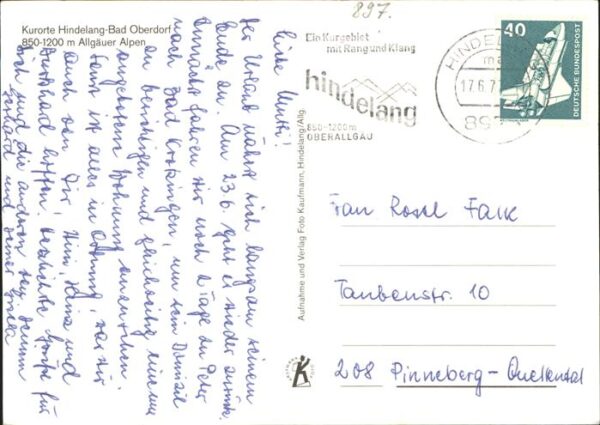 897.
Kurorte Hindelang-Bad Oberdorf
850-1200 m Allgäuer Alpen
Liebe Mutti!
Der Urlaub nähert sich langsam seinem
Ende zu. Am 23.6. geht es wieder zurück.
fahren wir noch 2 Tage zu Peter
nach Bad Krozingen, um sein Domizil
zu besichtigen und gleichzeitig eine uns
angebotene Wohnung anzusehen.
Sonst ist alles in Ordnung, was wir
auch von Dir, Heinz und
Burkhard hoffen. Herzliche Grüße für
Dich und die anderen von Deinem
Gerhard und Deiner Gisela
Aufnahme und Verlag Foto Kaufmann, Hindelang/Allg.
Ein Kurgebiet
mit Rang und Klang
hindelang
850-1200m
OBERALLGÄU
HINDEL
17.6.7
897
40
DEUTSCHE BUNDESPOST
Frau Rosel Falk
Taubenstr. 10
208 Pinneberg-Quellental
K